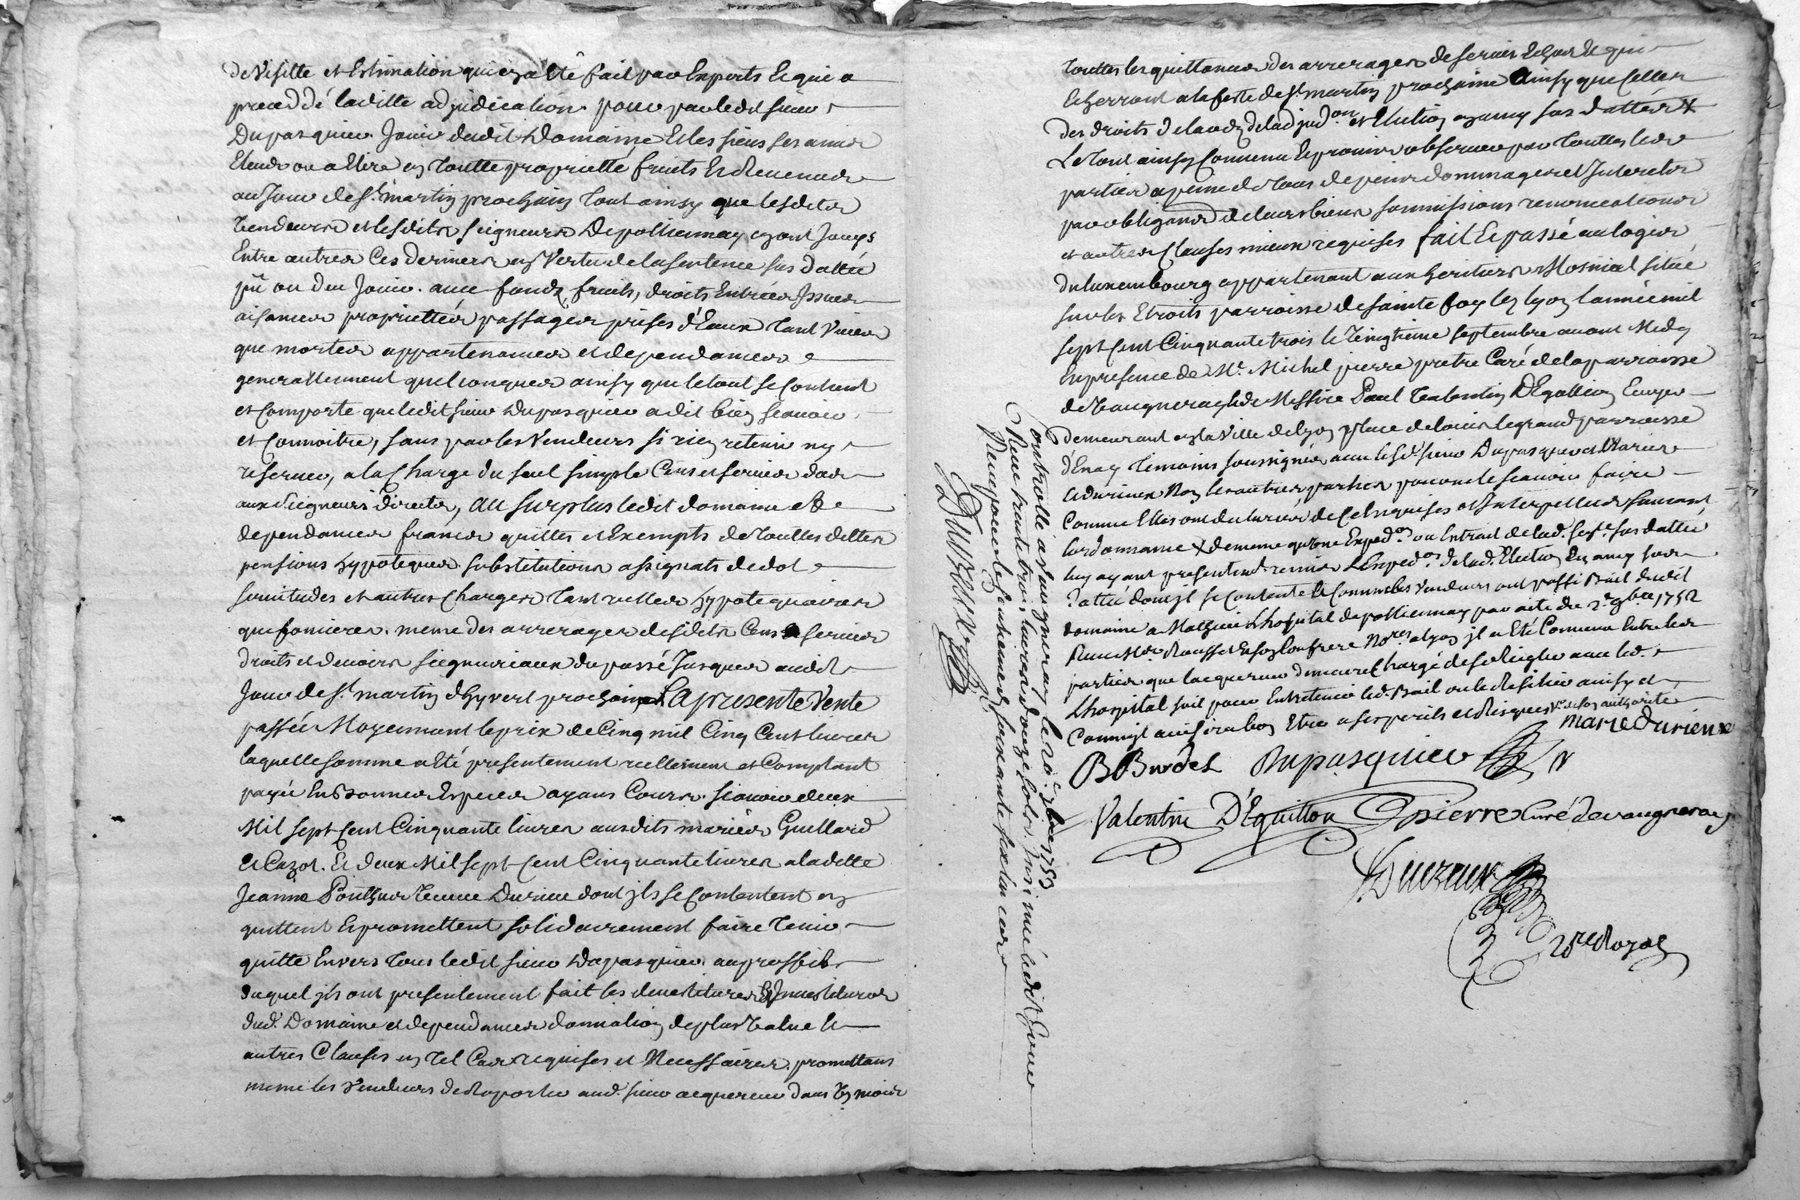 de visitte et Estimation qui en a eté fait par Experts Et qui a
precedé laditte adjudication pour par ledit sieur
Dupasquier Jouir dudit Domaine Et les siens ses amis
Eleus ou a Elire en Toutte propriette fruits Et Revenus
au Jour de St. martin prochain Tout ainsy que lesdits
Vendeurs et lesdits seigneurs De pollionnay en ont Jouys
Entre autres Ces derniers en Vertu de la sentence sus dattée
pû ou deu Jouir. avec fonds, fruits, droits Entrées Issues
aisances proprietter passages prises d'Eaux Tant vives
que mortes appartenances et dependances
generallement quelconques ainsy que le tout se Contient
et Comporte que ledit sieur Dupasquier a dit bien sçavoir
et Connoitre, sans par les Vendeurs si rien retenir ny
reserver, a la Charge du seul simple Cens et servis dus
aux seigneurs directs, au surplus ledit domaine et
dependances francs quittes et Exempts de Touttes dettes
pensions hypoteques substitutions assignats de dot
servitudes et autres Charges Tant reelles hypotequaires
que foncieres. meme des arrerages desdits Cens et servis
droits et devoirs seigneuriaux du passé Jusques audit
Jour de St. martin d'hyvert prochain La presente Vente
passée Moyennant le prix de Cinq mil Cinq Cent livres
laquelle somme a eté presentement reellement et Comptant
payée En bonnes Especes ayans Cours. sçavoir deux
Mil sept Cent Cinquante livres ausdits mariés Guillard
et Cazot. Et deux Mil sept Cent Cinquante livres a laditte
Jeanne Ponthus veuve Durieu dont jls se Contentent en
quittent Et promettent solidairement faire Tenir
quitte Envers Tous ledit sieur Dupasquier. au proffit
duquel jls ont presentement fait les devestitures Et Investitures
dud. Domaine et dependances donnation de plus value Et
autres Clauses en tel Cas requises et Necessaires. promettans
meme les Vendeurs de Raporter aud. sieur acquereur dans Un mois
Touttes les quittances des arrerages de servis Echus Et qui
Echerront a la feste de St. martin prochaine Ainsy que Celles
des droits de laods de lad. jud.on et Election en amy sus dattée X
Le Tout ainsy Convenu Et promis observer par Touttes les
parties a peine de Tous depens dommages et Interets
par obligations de leurs biens soumissions renonciations
et autres Clauses mieux requises fait Et passé au logis
du luxembourg appartenant aux heritiers Mosnial situé
sur les Etroits parroisse de sainte foy les lyon l'année mil
sept Cent Cinquante trois le Vingtieme septembre avant Midy
En presence de Mr. Michel pierre pretre Curé de la parroisse
de Vaugneray et de Messire Paul Valentin D'Eguillon Ecuyer
demeurant en la Ville de lyon place de louis le grand parroisse
d'Enay Temoins soussignés avec led. sieur Dupasquier et Marie
Durieux Non les autres parties pour ne le sçavoir faire
Comme Elles ont declaré de Ce Enquises et Interpellées suivant
lordonnance X de meme qu'une Exped.on ou Extrait de lad. sen.ce sus dattée
luy ayant presentem.t remis L'exped.on de lad. Election En amy sus
dattée dont jl se Contente Et Comme les Vendeurs ont passé Bail dudit
domaine a Mathieu Lhopital de pollionnay par acte du 2e. 9bre 1752
Reçu Me. Rousset Et son Confrere No.res a lyon jl a Eté Convenu Entre les
parties que lacquereur demeure Chargé de se Regler avec led.
Lhopital soit pour Entretenir led. Bail ou le Resilier ainsy et
Comme jl avisera bon Etre a ses perils et Risques De son authorité
marie durieux
BBurdel Dupasquier
Valentin D'Eguillon Mpierre Curé de vaugneray
Duvzeux
No.re Royal
Controllé a vaugneray le 20. 7bre 1753
Reçu trente trois livres douze sols, Insinué ledit Jour
Reçu pour le Centieme soixante six livres
Duvzeux